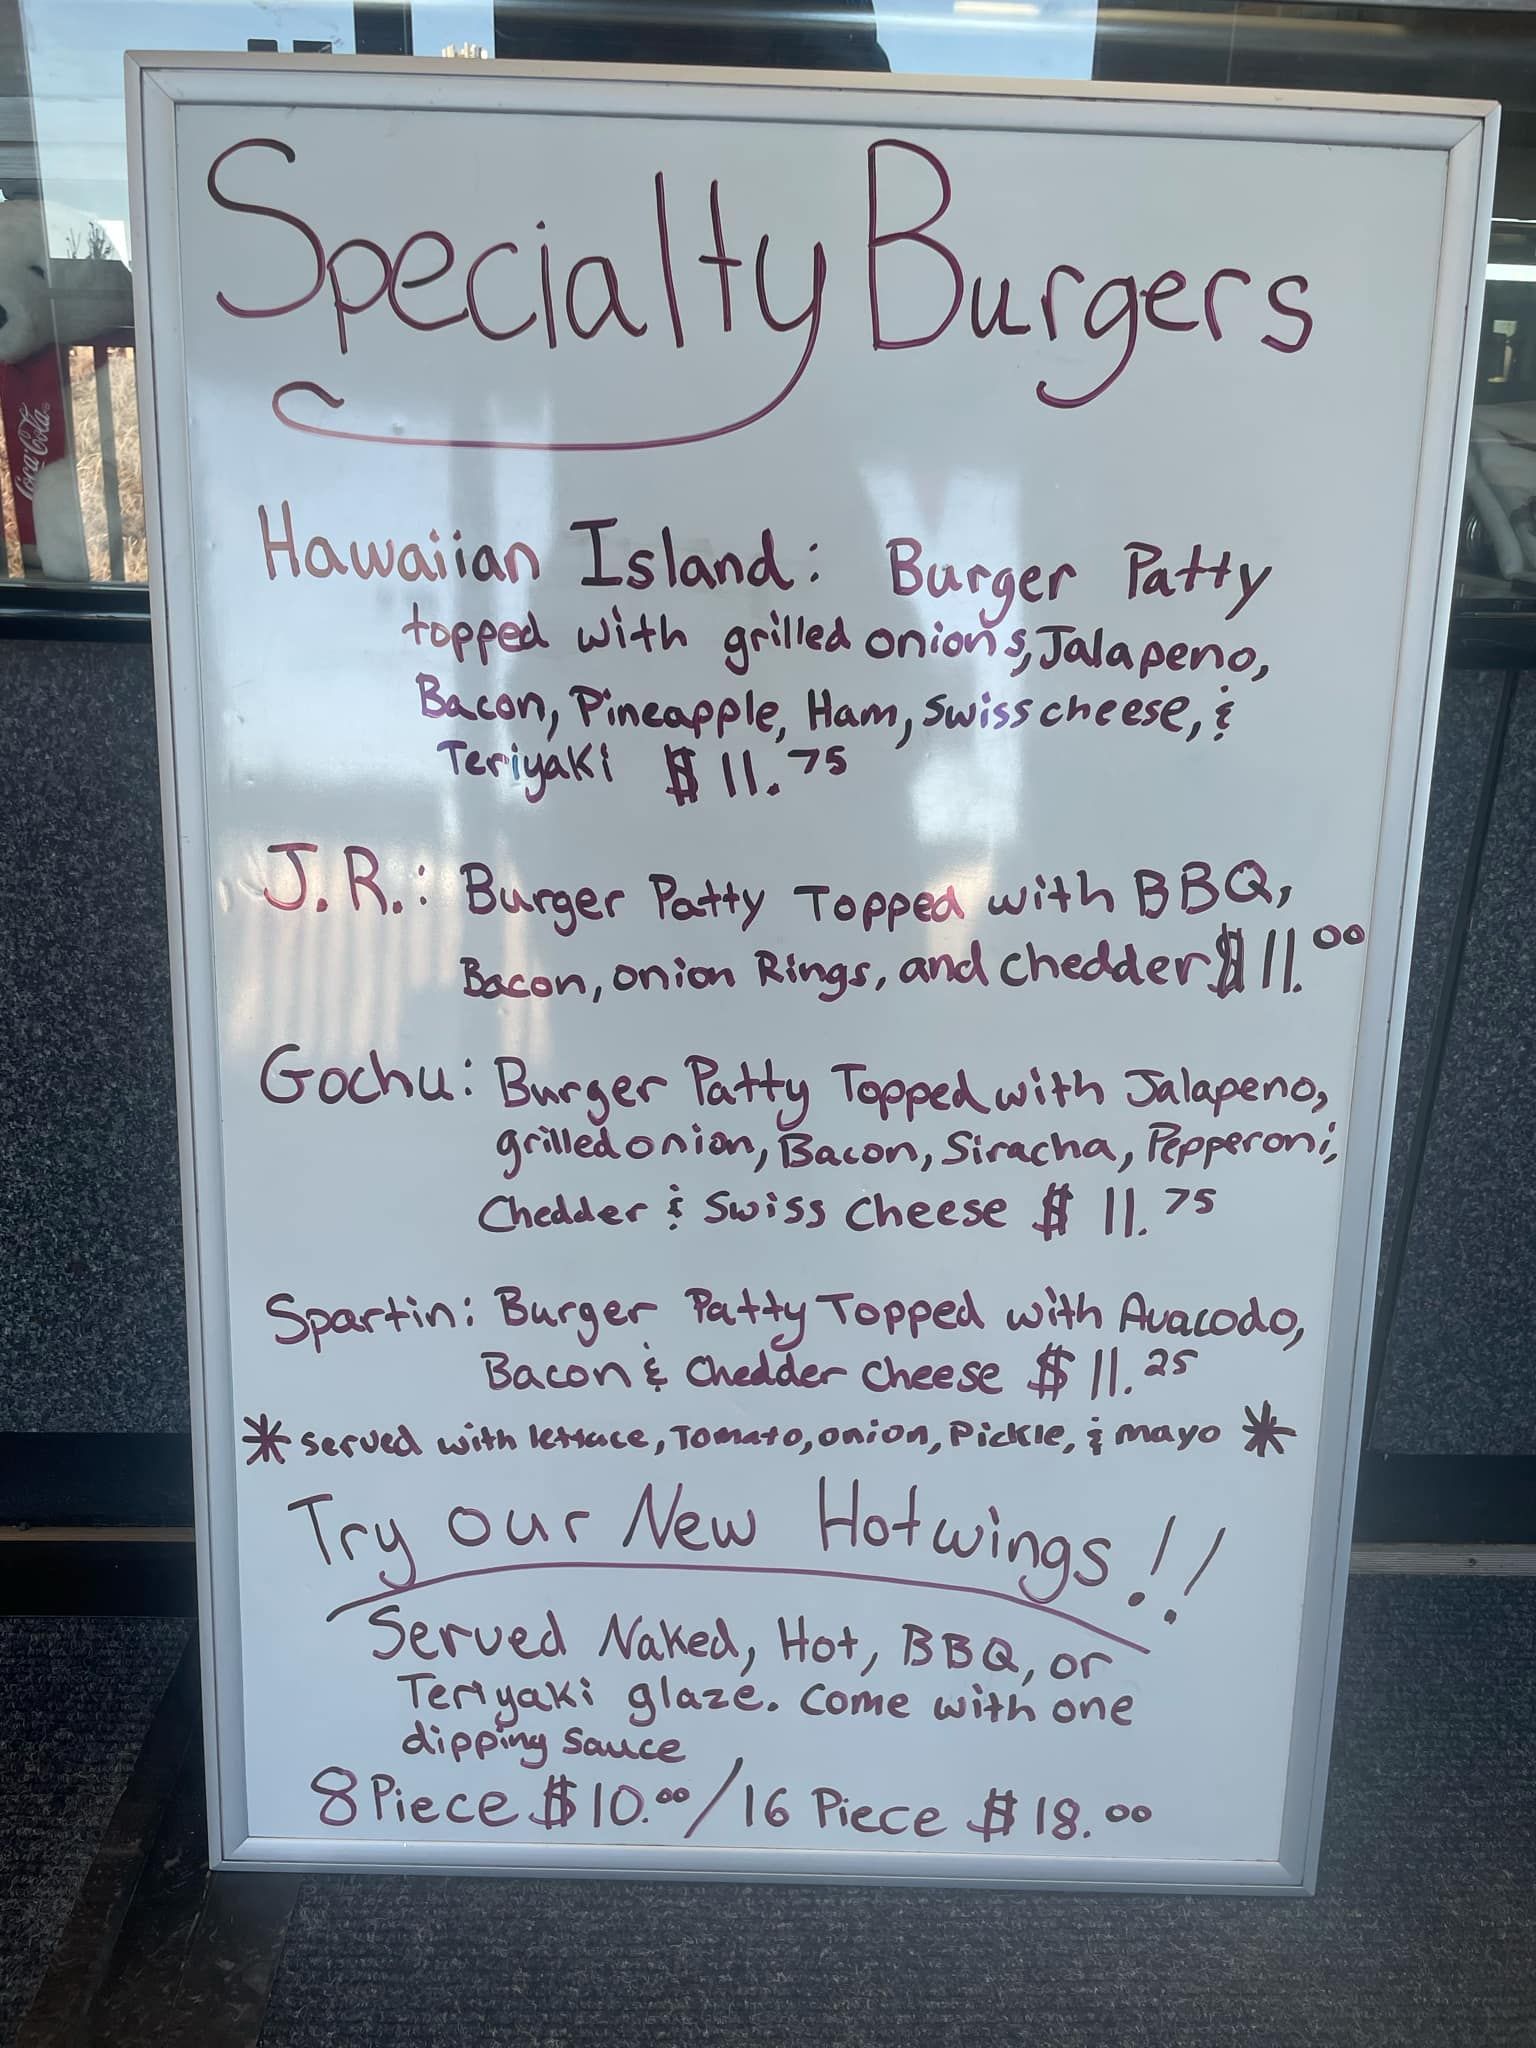 Specialty Burgers
Coca-Cola
Hawaiian Island: Burger Patty
topped with grilled onions, Jalapeno,
Bacon, Pineapple, Ham, Swiss cheese, &
Teriyaki $11.75
J.R.: Burger Patty Topped with BBQ,
Bacon, onion Rings, and chedder $11.00
Gochu: Burger Patty Topped with Jalapeno,
grilled onion, Bacon, Siracha, Pepperoni,
Chedder & Swiss cheese $11.75
Spartin: Burger Patty Topped with Avacodo,
Bacon & Chedder cheese $11.25
* served with lettuce, Tomato, onion, Pickle, & mayo *
Try our New Hotwings!!
Served Naked, Hot, BBQ, or
Teriyaki glaze. Come with one
dipping sauce
8 Piece $10.00 / 16 Piece $18.00